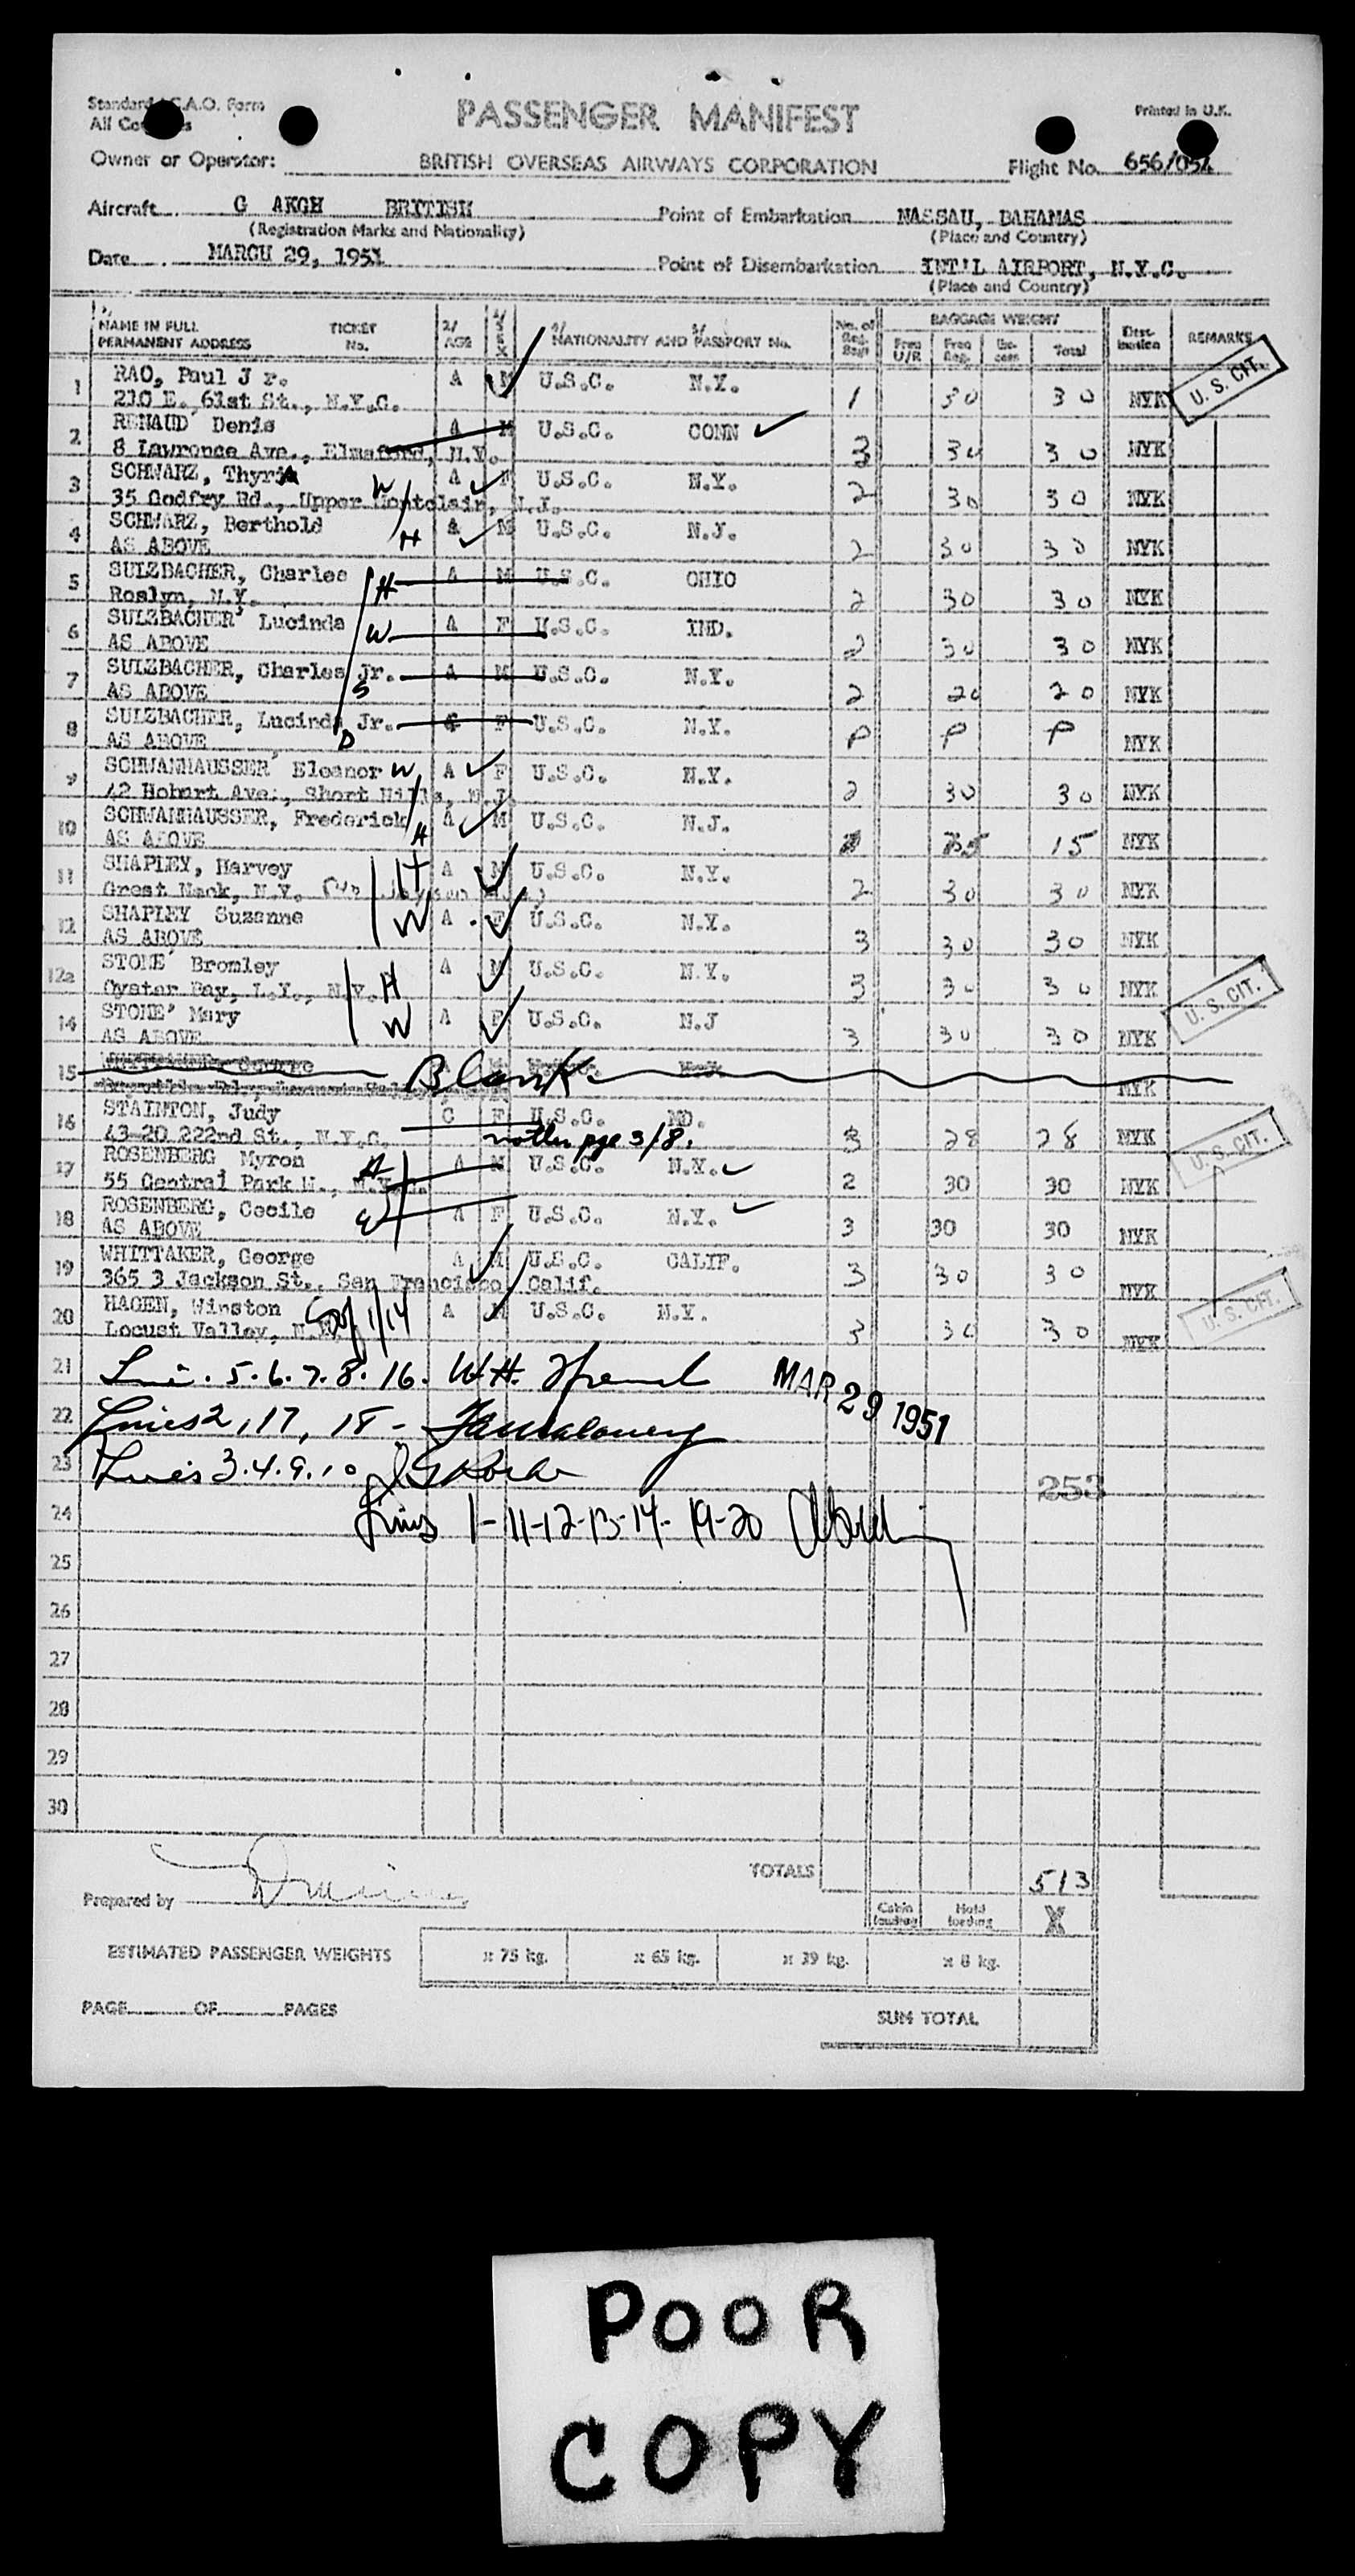 Standard I.C.A.O. Form
PASSENGER MANIFEST
Printed in U.K.
Owner or Operator: BRITISH OVERSEAS AIRWAYS CORPORATION Flight No. 656/054
Aircraft G AKGH BRITISH Point of Embarkation NASSAU, BAHAMAS
(Registration Marks and Nationality) (Place and Country)
Date MARCH 29, 1951 Point of Disembarkation INT'L AIRPORT, N.Y.C.
(Place and Country)
NAME IN FULL TICKET 2/ NATIONALITY AND PASSPORT No. No. of BAGGAGE WEIGHT REMARKS
PERMANENT ADDRESS No. AGE SEX Free U/R Free Total
1 RAO, Paul J r. A M U.S.C. N.Y. 1 30 30 NYK U. S. CIT.
210 E. 61st St., N.Y.C.
2 RENAUD Denis A M U.S.C. CONN 3 30 30 NYK
8 Lawrence Ave., Elmsford, N.Y.
3 SCHWARZ, Thyra W A F U.S.C. N.Y. 2 30 30 NYK
35 Godfry Rd., Upper Montclair, N.J.
4 SCHWARZ, Berthold H A M U.S.C. N.J. 2 30 30 NYK
AS ABOVE
5 SULZBACHER, Charles H A M U.S.C. OHIO 2 30 30 NYK
Roslyn, N.Y.
6 SULZBACHER' Lucinda W A F U.S.C. IND. 2 30 30 NYK
AS ABOVE
7 SULZBACHER, Charles Jr. S A M U.S.C. N.Y. 2 20 20 NYK
AS ABOVE
8 SULZBACHER, Lucinda Jr. D F U.S.C. N.Y. P P P NYK
AS ABOVE
9 SCHWANHAUSSER' Eleanor W A F U.S.C. N.Y. 2 30 30 NYK
42 Hobart Ave., Short Hills, N.J.
10 SCHWANHAUSSER, Frederick H A M U.S.C. N.J. 15 NYK
AS ABOVE
11 SHAPLEY, Harvey H A M U.S.C. N.Y. 2 30 30 NYK
Great Neck, N.Y.
12 SHAPLEY Suzanne W A F U.S.C. N.Y. 3 30 30 NYK
AS ABOVE
12a STONE' Bromley H A M U.S.C. N.Y. 3 30 30 NYK
Oyster Bay, L.Y., N.Y. U. S. CIT.
14 STONE' Mary W A F U.S.C. N.J 3 30 30 NYK
AS ABOVE
15 Blank NYK
16 STAINTON, Judy C F U.S.C. MD. 3 28 28 NYK U. S. CIT.
43-20 222nd St., N.Y.C. mother pge 3/8.
17 ROSENBERG Myron H A M U.S.C. N.Y. 2 30 30 NYK
55 Central Park W., N.Y.C.
18 ROSENBERG, Cecile W A F U.S.C. N.Y. 3 30 30 NYK
AS ABOVE
19 WHITTAKER, George A M U.S.C. CALIF. 3 30 30 NYK
365 3 Jackson St., San Francisco, Calif.
20 HAGEN, Winston A M U.S.C. N.Y. 3 30 30 NYK U. S. CIT.
Locust Valley, N.Y. 1/14
21 5. 6. 7. 8. 16. W.H. MAR 29 1951
22 Lines 2, 17, 18 -
23 Lines 3. 4. 9. 10 253
24 Lines 1-11-12-13-14-19-20
25
26
27
28
29
30
TOTALS 513
Prepared by
Cabin loading Hold loading X
ESTIMATED PASSENGER WEIGHTS x 75 kg. x 65 kg. x 39 kg. x 8 kg.
PAGE OF PAGES SUM TOTAL
POOR
COPY